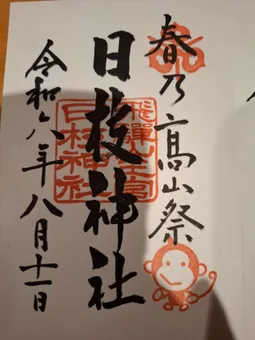 春乃高山祭
飛騨山王宮
日枝神社
日枝神社
令和六年八月十一日